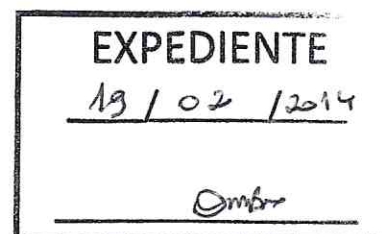 EXPEDIENTE
19 / 02 /2014